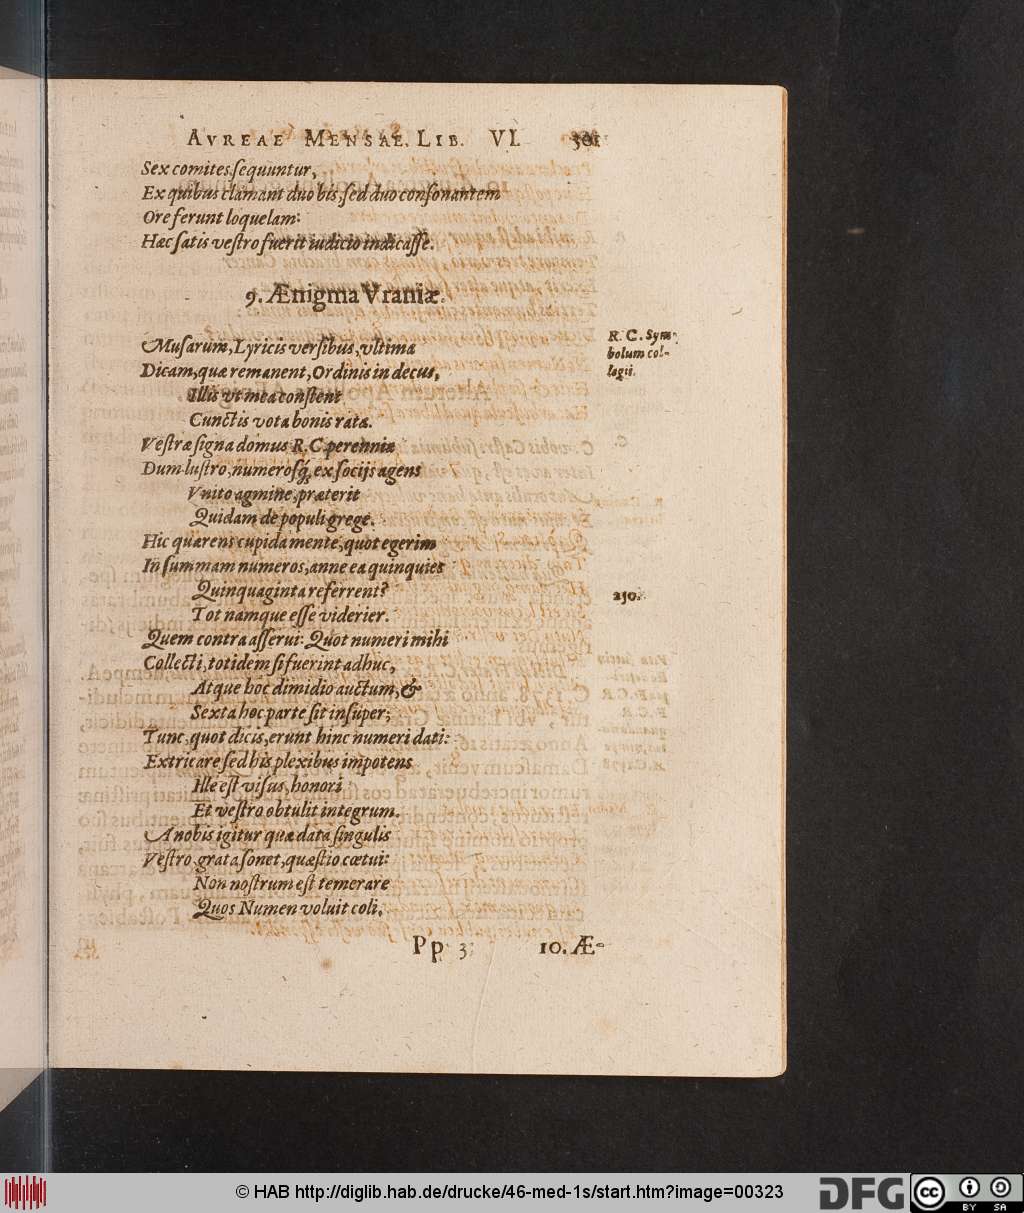 AVREAE MENSAE. LIB. VI. 301
Sex comites sequuntur,
Ex quibus clamant duo bis, sed duo consonantem
Ore ferunt loquelam:
Hæc satis vestro fuerit iudicio indicasse.
9. Ænigma Vraniæ.
Musarum, Lyricis versibus, vltima
R. C. Sym-
Dicam, quæ remanent, Ordinis in decus,
bolum col-
legii.
Illis vt mea constent
Cunctis vota bonis rata.
Vestræ signa domus R. C. perennia
Dum lustro, numerosq́, ex socijs agens
Vnito agmine, præterit
Quidam de populi grege.
Hic quærens cupida mente, quot egerim
In summam numeros, anne ea quinquies
Quinquaginta referrent?
250.
Tot namque esse viderier.
Quem contra asserui: Quot numeri mihi
Collecti, totidem si fuerint adhuc,
Atque hoc dimidio auctum, &
Sexta hoc parte sit insuper;
Tunc, quot dicis, erunt hinc numeri dati:
Extricare sed his plexibus impotens
Ille est visus, honori
Et vestro obtulit integrum.
A nobis igitur quæ data singulis
Vestro grata sonet, quæstio cœtui:
Non nostrum est temerare
Quos Numen voluit coli.
Pp 3 10. Æ-
© HAB http://diglib.hab.de/drucke/46-med-1s/start.htm?image=00323
DFG
cc BY SA